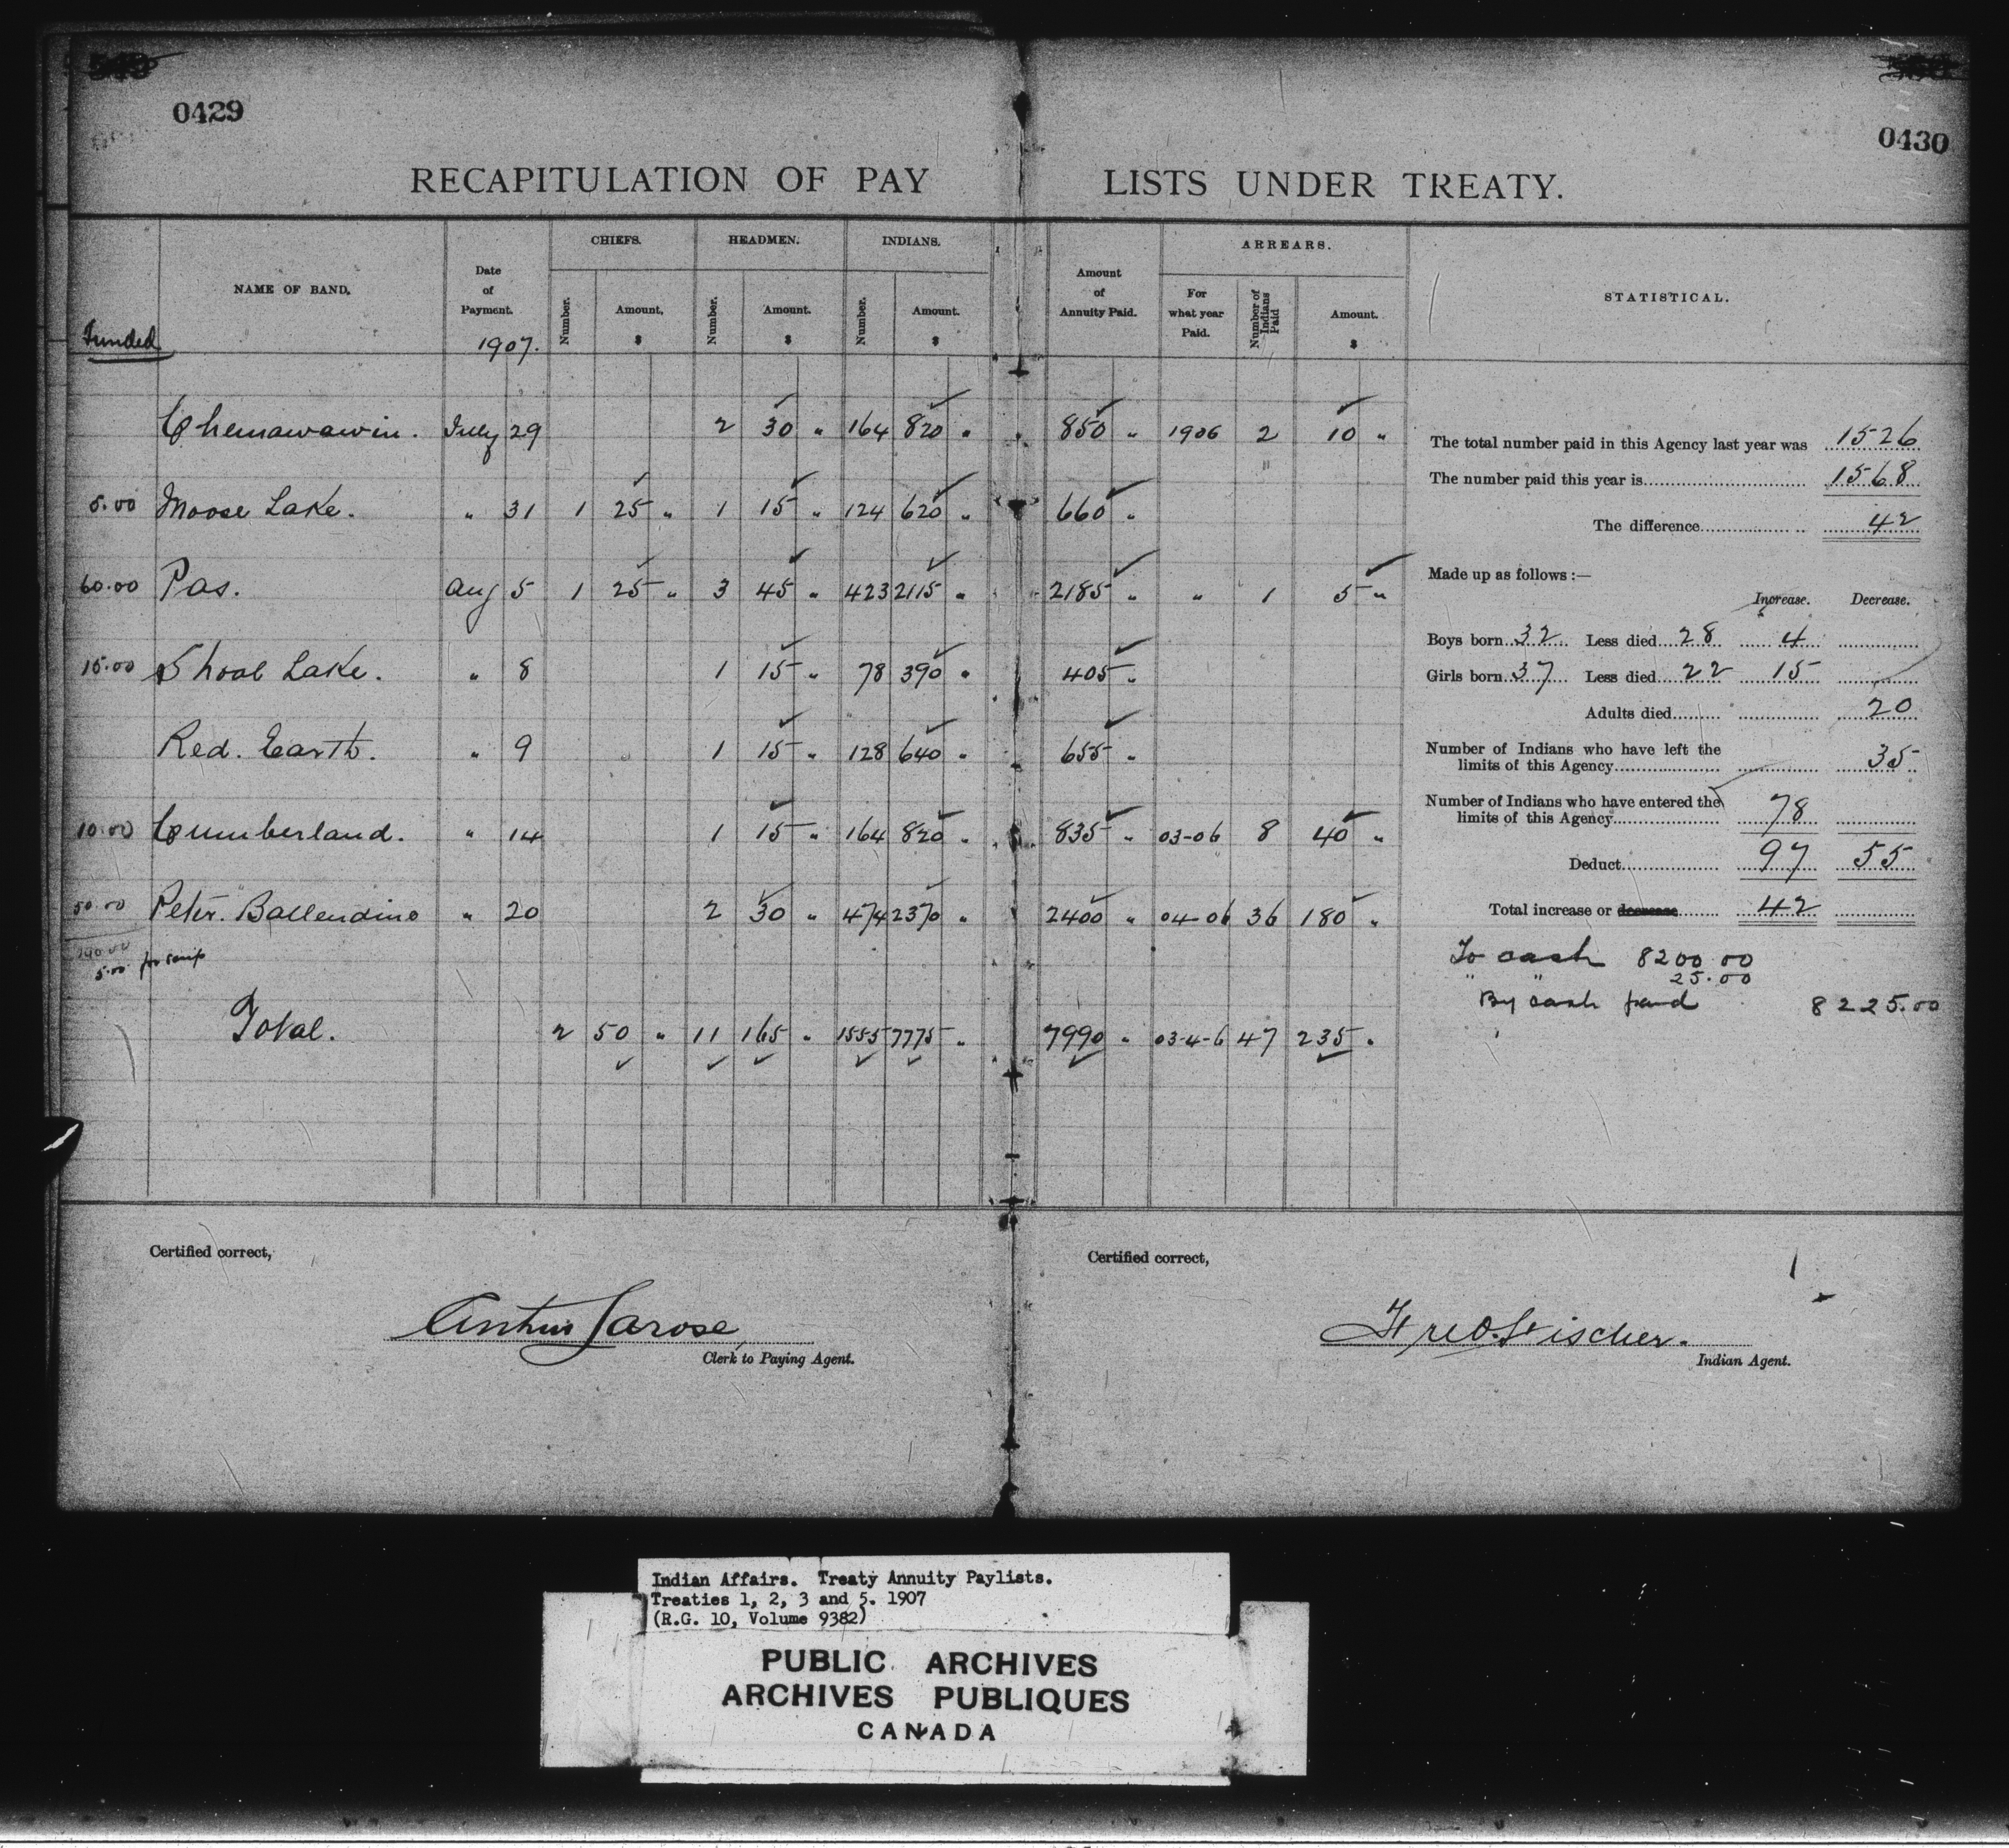 0429
0430
RECAPITULATION OF PAY LISTS UNDER TREATY.
Funded
NAME OF BAND.
Date of Payment.
1907.
CHIEFS.
Number.
Amount, $
HEADMEN.
Number.
Amount. $
INDIANS.
Number.
Amount. $
Amount of Annuity Paid.
ARREARS.
For what year Paid.
Number of Indians Paid
Amount. $
STATISTICAL.
Chemawawin. July 29 2 30 " 164 820 " 850 " 1906 2 10 "
5.00 Moose Lake. " 31 1 25 " 1 15 " 124 620 " 660 "
60.00 Pas. Aug 5 1 25 " 3 45 " 423 2115 " 2185 " " 1 5 "
15.00 Shoal Lake. " 8 1 15 " 78 390 " 405 "
Red. Earth. " 9 1 15 " 128 640 " 655 "
10.00 Cumberland. " 14 1 15 " 164 820 " 835 " 03-06 8 40 "
50.00 Peter. Ballendine " 20 2 30 " 474 2370 " 2400 " 04-06 36 180 "
5.00 for scrip
Total. 2 50 " 11 165 " 1555 7775 " 7990 " 03-4-6 47 235 "
The total number paid in this Agency last year was 1526
The number paid this year is 1568
The difference 42
Made up as follows :—
Increase. Decrease.
Boys born 32 Less died 28 4
Girls born 37 Less died 22 15
Adults died 20
Number of Indians who have left the
limits of this Agency 35
Number of Indians who have entered the
limits of this Agency 78
Deduct 97 55
Total increase or decrease 42
To cash 8200.00
" " 25.00
By cash paid 8225.00
Certified correct,
Arthur Larose
Clerk to Paying Agent.
Certified correct,
Fred. Fischer.
Indian Agent.
Indian Affairs. Treaty Annuity Paylists.
Treaties 1, 2, 3 and 5. 1907
(R.G. 10, Volume 9382)
PUBLIC ARCHIVES
ARCHIVES PUBLIQUES
CANADA